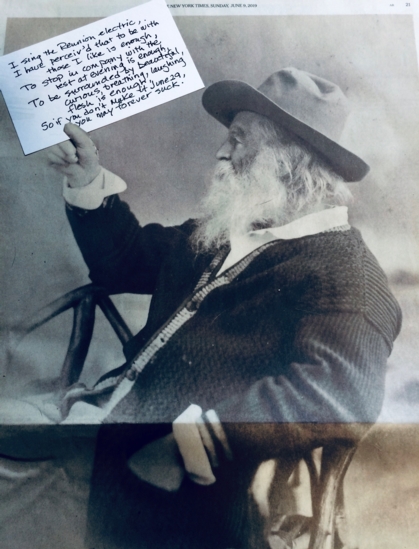 NEW YORK TIMES, SUNDAY, JUNE 9, 2019
21
I sing the Reunion electric,
I have perceiv'd that to be with
those I like is enough,
To stop in company with the
rest at evening is enough,
To be surrounded by beautiful,
curious, breathing, laughing
flesh is enough,
So if you don't make it June 29,
you may forever suck.